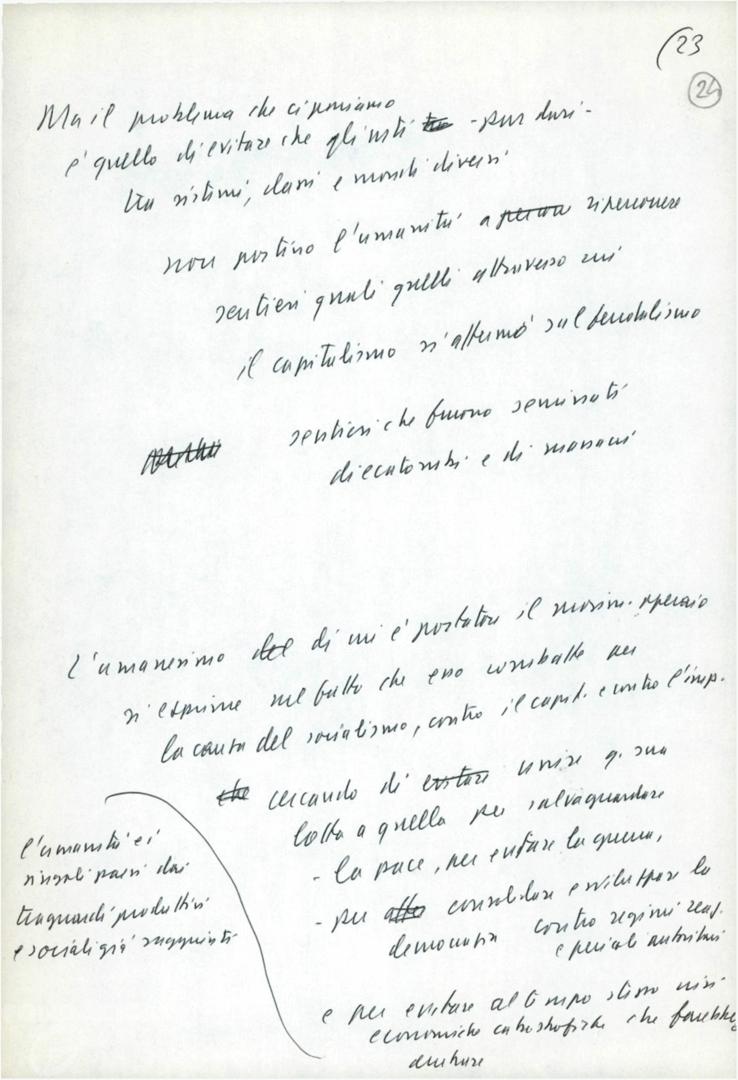 (23
24
Ma il problema che ci poniamo
è quello di evitare che gli urti - pur duri -
tra sistemi, classi e mondi diversi
non portino l'umanità a ripercorrere
sentieri quali quelli attraverso cui
il capitalismo si affermò sul feudalismo
sentieri che furono seminati
di ecatombi e di massacri
L'umanesimo di cui è portatore il movim. operaio
si esprime nel fatto che esso combatte per
la causa del socialismo, contro il capit. e contro l'imp.
cercando di unire q. sua
lotta a quella per salvaguardare
- la pace, per evitare la guerra,
- per consolidare e sviluppare la
democrazia contro regimi reaz.
e pericoli autoritari
e per evitare al tempo stesso crisi
economiche catastrofiche che farebbero
arretrare
l'umanità e i
singoli paesi dai
traguardi produttivi
e sociali già raggiunti